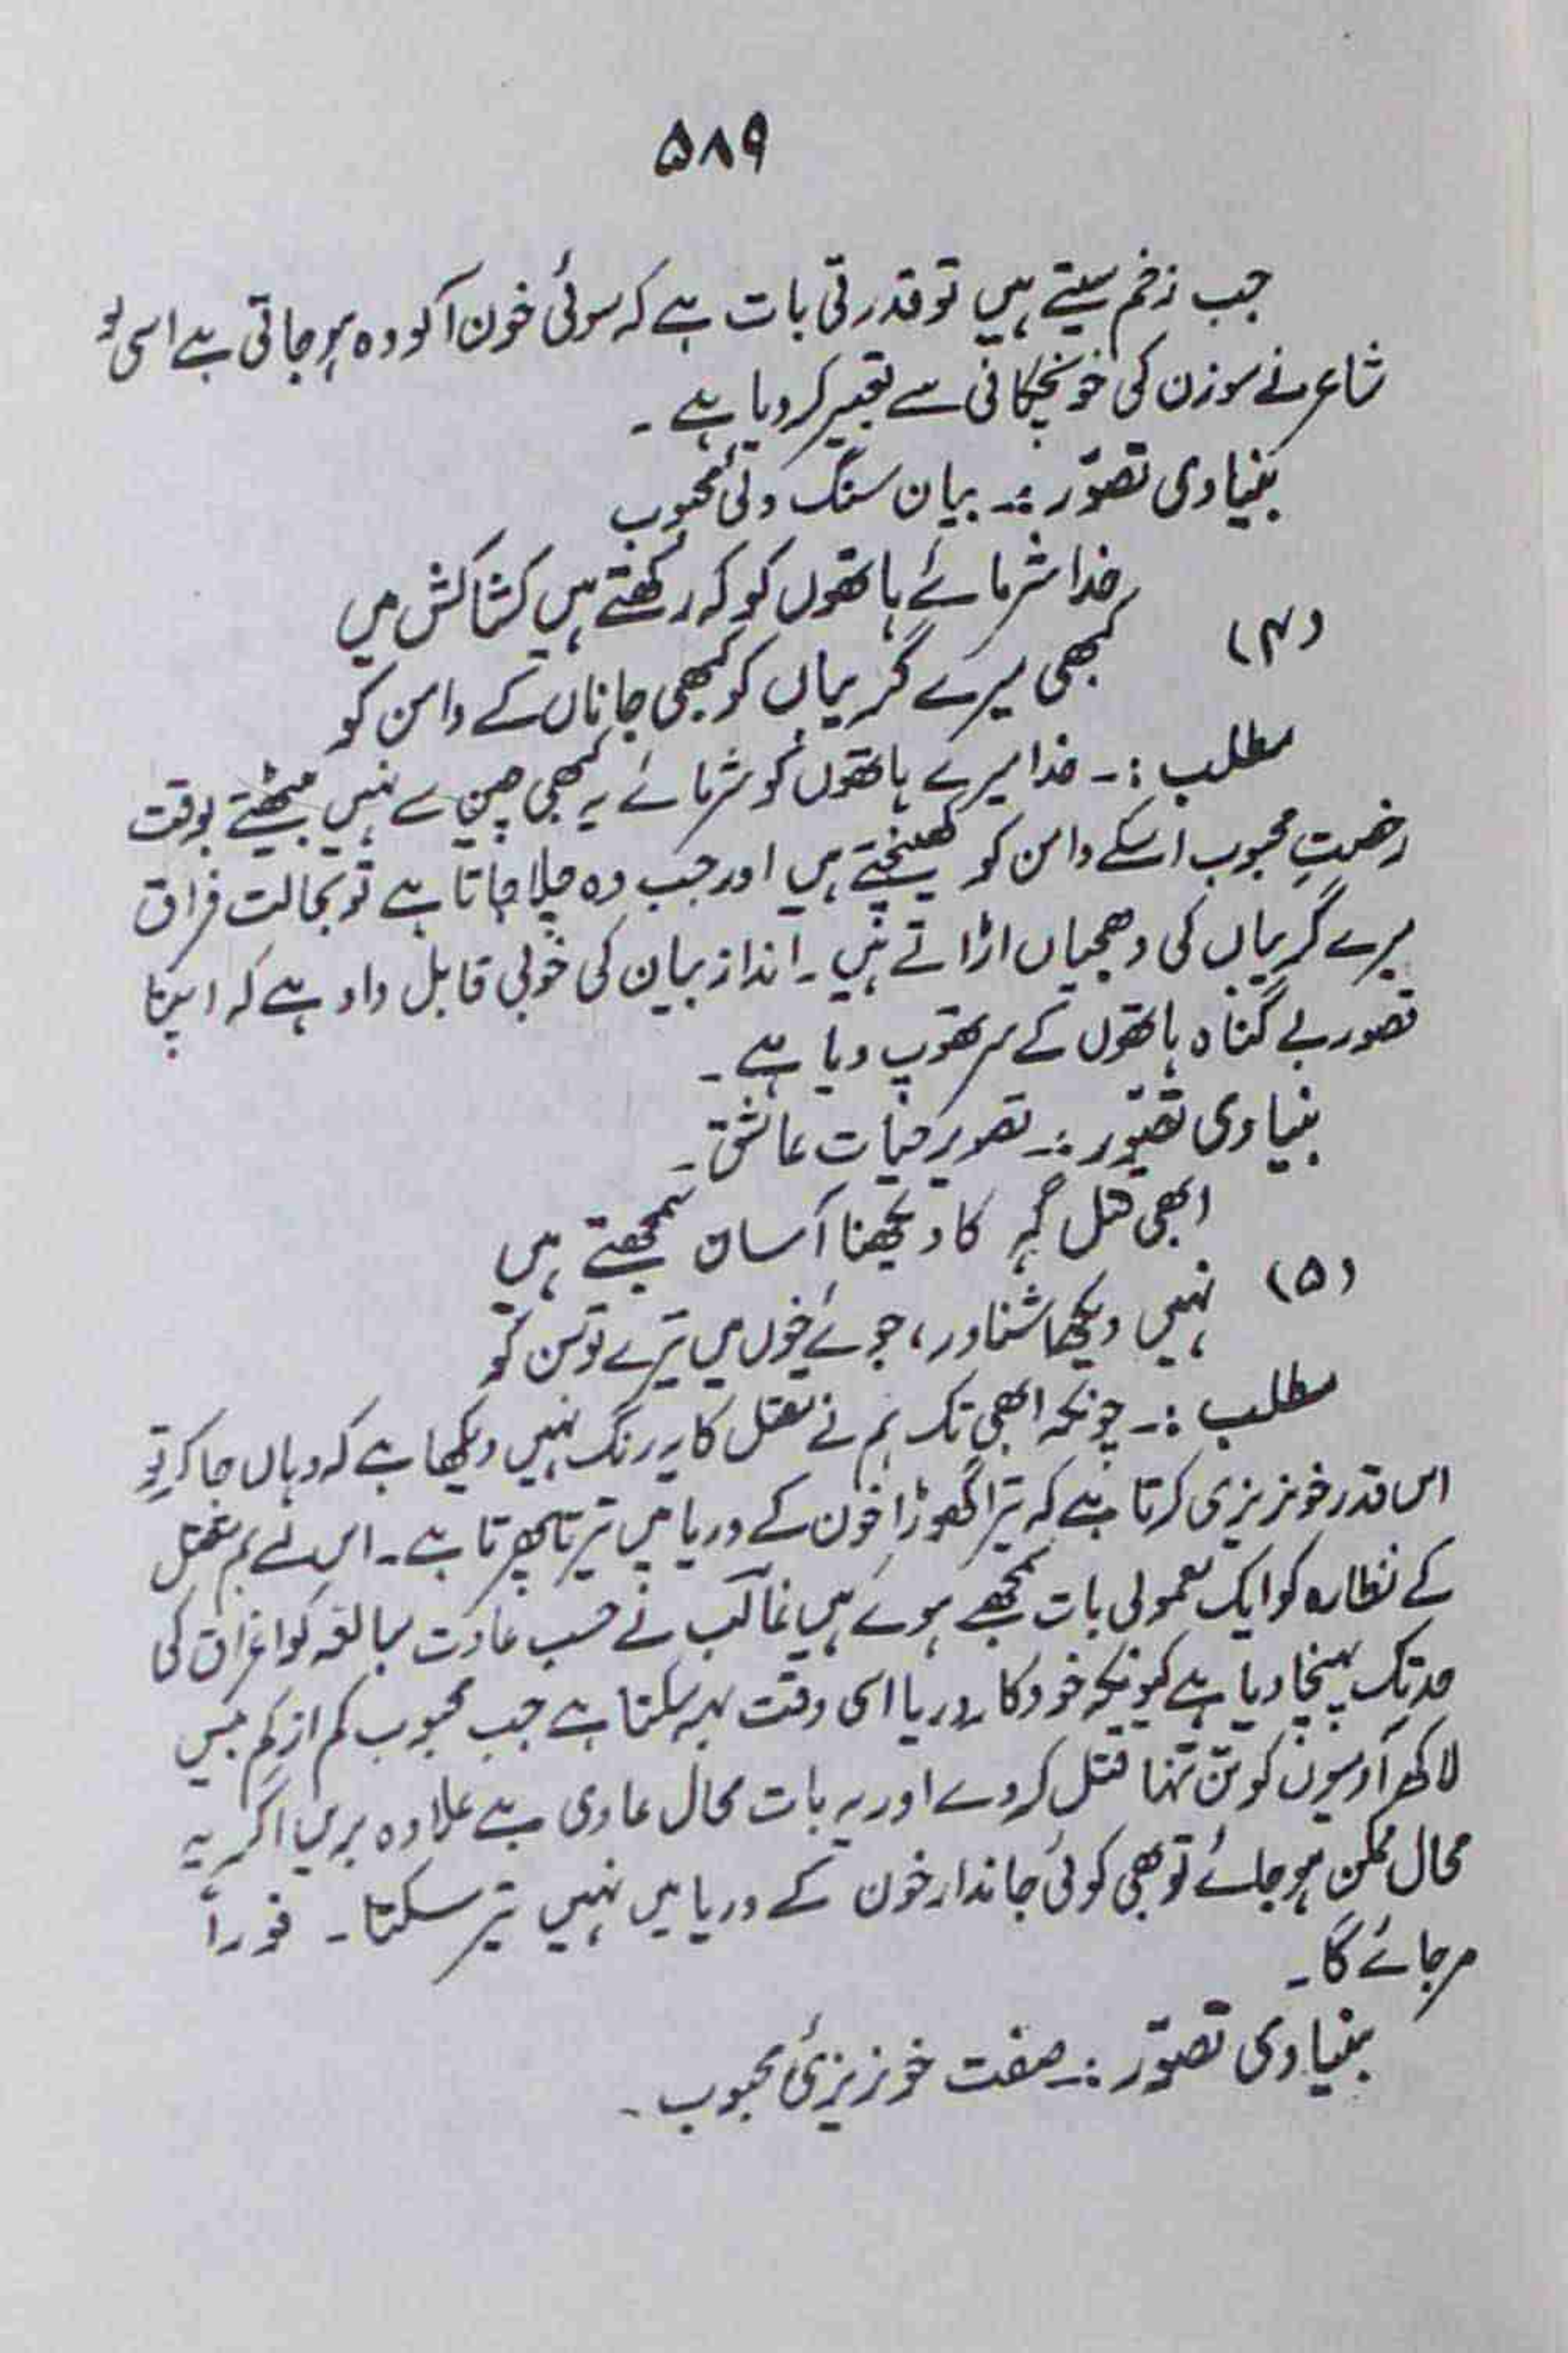 ۵۸۹
جب زخم سیتے ہیں تو قدرتی بات ہے کہ سوئی خون آلودہ ہو جاتی ہے اسی کو
شاعر نے سوزن کی خونچکانی سے تعبیر کر دیا ہے ۔
بنیادی تصوّر :۔ بیان سنگ دلئ محبوب
خدا شرمائے ہاتھوں کو کہ رکھتے ہیں کشاکش میں
(۴)
کبھی میرے گریباں کو کبھی جاناں کے دامن کو
مطلب :۔ خدا میرے ہاتھوں کو شرمائے یہ کبھی چین سے نہیں بیٹھتے بوقت
رخصتِ محبوب اسکے دامن کو کھینچتے ہیں اور جب وہ چلا جاتا ہے تو بحالت فراق
میرے گریباں کی دھجیاں اڑاتے ہیں ۔ انداز بیان کی خوبی قابل داد ہے کہ اپنا
قصور بے گناہ ہاتھوں کے سر تھوپ دیا ہے ۔
بنیادی تصّور :۔ تصویر حیات عاشق ۔
ابھی قتل گہ کا دیکھنا آساں سمجھتے ہیں
(۵)
نہیں دیکھا شناور، جوئے خوں میں تیرے توسن کو
مطلب :۔ چونکہ ابھی تک ہم نے مقتل کا یہ رنگ نہیں دیکھا ہے کہ وہاں جا کر تو
اس قدر خونریزی کرتا ہے کہ تیرا گھوڑا خون کے دریا میں تیرتا پھرتا ہے ۔ اس لئے ہم مقتل
کے نظارہ کو ایک معمولی بات سمجھے ہوئے ہیں غالب نے حسب عادت مبالغہ کو اغراق کی
حد تک پہنچا دیا ہے کیونکہ خود کا دریا اسی وقت بہہ سکتا ہے جب محبوب کم از کم بیس
لاکھ آدمیوں کو تن تنہا قتل کر دے اور یہ بات محال عادی ہے علاوہ بریں اگر یہ
محال ممکن ہو جائے تو بھی کوئی جاندار خون کے دریا میں نہیں تیر سکتا ۔ فوراً
مر جائے گا ۔
بنیادی تصوّر :۔ صفت خونریزئ محبوب ۔